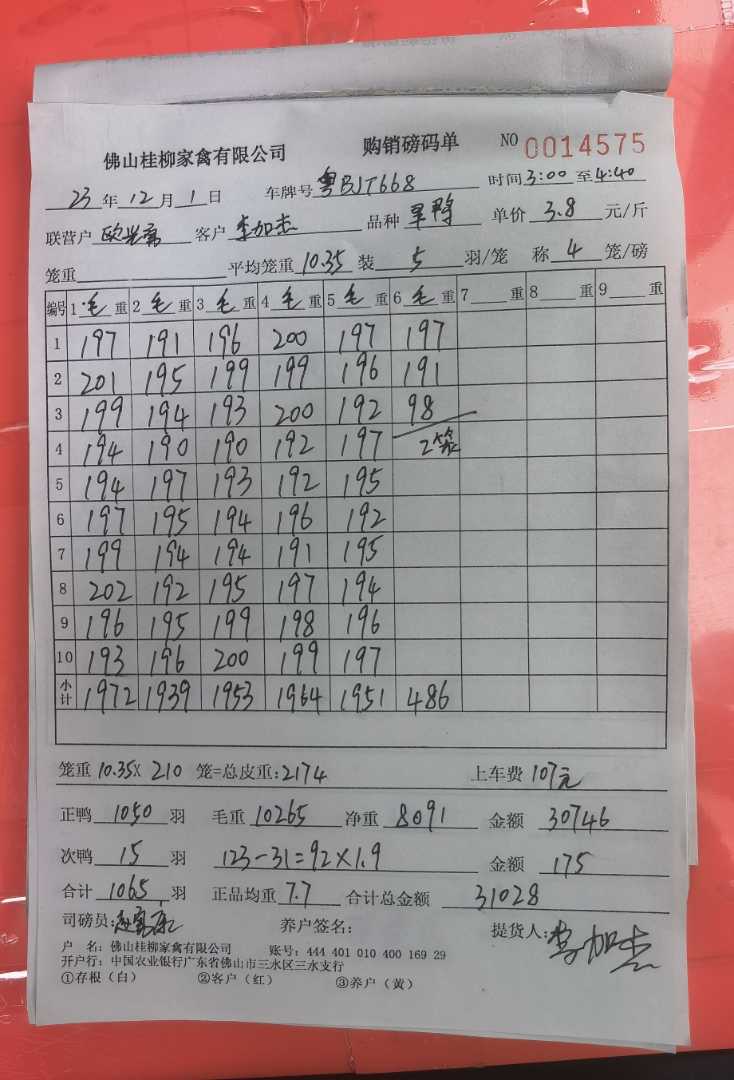 佛山桂柳家禽有限公司 购销磅码单 NO 0014575
23 年 12 月 1 日 车牌号 粤BJT668 时间 3:00 至 4:40
联营户 客户 李加杰 品种 单价 3.8 元/斤
笼重 平均笼重 10.35 装 5 羽/笼 称 4 笼/磅
编号 1 毛 重 2 毛 重 3 毛 重 4 毛 重 5 毛 重 6 毛 重 7 重 8 重 9 重
1 197 191 196 200 197 197
2 201 195 199 199 196 191
3 199 194 193 200 192 98
4 194 190 190 192 197 2笼
5 194 197 193 192 195
6 197 195 194 196 192
7 199 194 194 191 195
8 202 192 195 197 194
9 196 195 199 198 196
10 193 196 200 199 197
小计 1972 1939 1953 1964 1951 486
笼重 10.35X 210 笼=总皮重:2174 上车费 107元
正鸭 1050 羽 毛重 10265 净重 8091 金额 30746
次鸭 15 羽 123-31=92×1.9 金额 175
合计 1065 羽 正品均重 7.7 合计总金额 31028
司磅员: 养户签名: 提货人: 李加杰
户 名: 佛山桂柳家禽有限公司 账号: 444 401 010 400 169 29
开户行: 中国农业银行广东省佛山市三水区三水支行
①存根（白） ②客户（红） ③养户（黄）